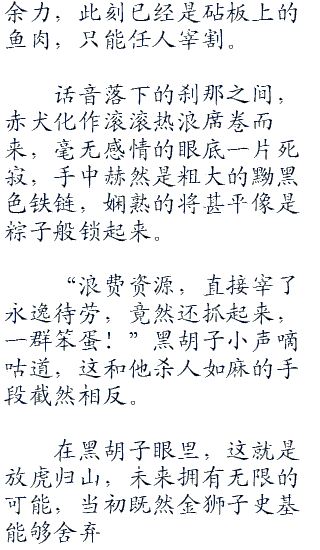 余力，此刻已经是砧板上的
鱼肉，只能任人宰割。
话音落下的刹那之间，
赤犬化作滚滚热浪席卷而
来，毫无感情的眼底一片死
寂，手中赫然是粗大的黝黑
色铁链，娴熟的将甚平像是
粽子般锁起来。
“浪费资源，直接宰了
永逸待劳，竟然还抓起来，
一群笨蛋！”黑胡子小声嘀
咕道，这和他杀人如麻的手
段截然相反。
在黑胡子眼里，这就是
放虎归山，未来拥有无限的
可能，当初既然金狮子史基
能够舍弃